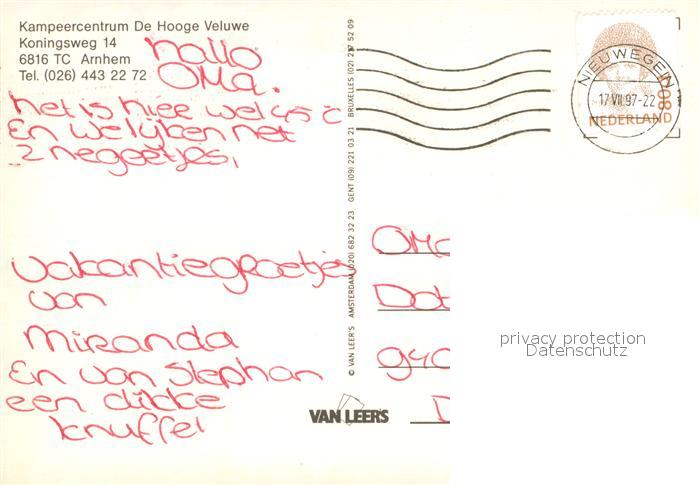 Kampeercentrum De Hooge Veluwe
Koningsweg 14
6816 TC Arnhem
Tel. (026) 443 22 72
hallo
OMa.
het is hiee wel 45 c
En we lijken net
2 negeetjes,
vakantiegroetjes
van
Miranda
En van Stephan
een dikke
knuffel
© VAN LEER'S AMSTERDAM (020) 682 32 23 GENT (09) 221 03 21 BRUXELLES (02) 217 52 09
VAN LEER'S
NIEUWEGEIN
17 VII 97-22
80
NEDERLAND
OMa
privacy protection
Datenschutz